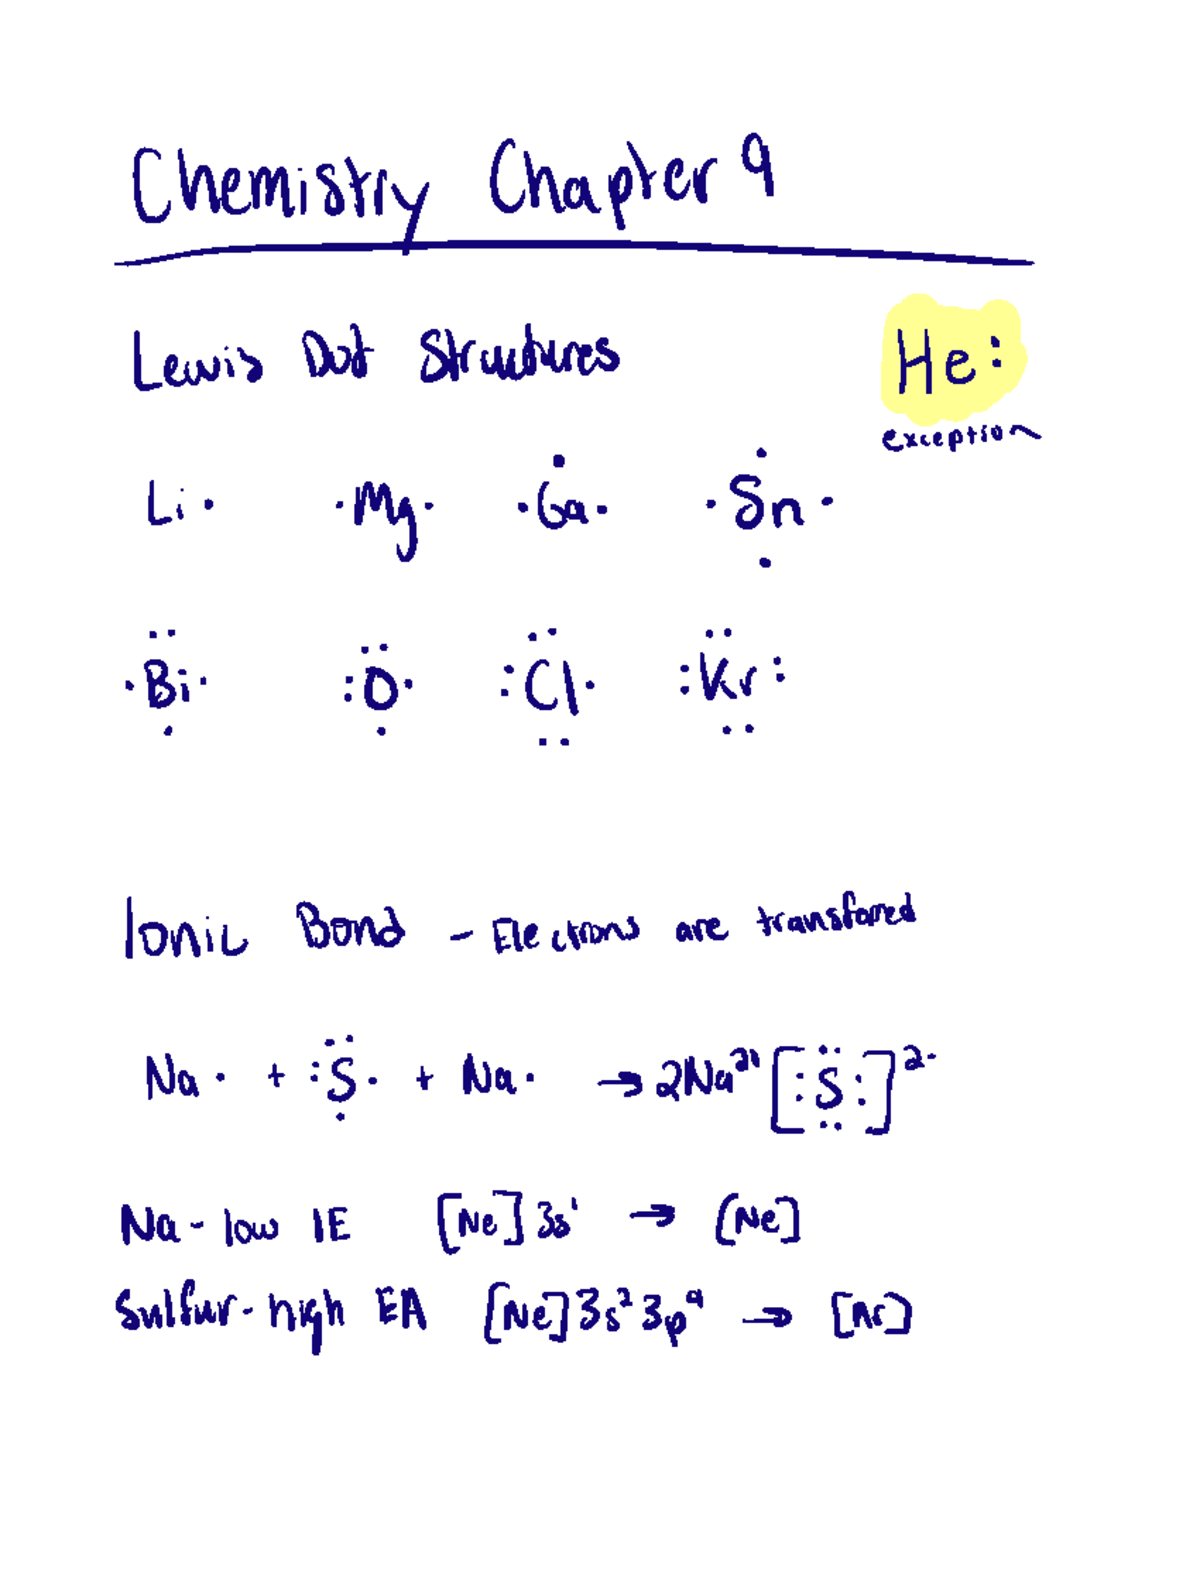 Chemistry Chapter 9
Lewis Dot Structures
He:
exception
Li· ·Mg· ·Ga· ·Sn·
·Bi· :O· :Cl· :Kr:
Ionic Bond - Electrons are transferred
Na· + :S· + Na· → 2Na²⁺ [:S:]²⁻
Na - low IE [Ne] 3s¹ → [Ne]
Sulfur - high EA [Ne] 3s² 3p⁴ → [Ar]